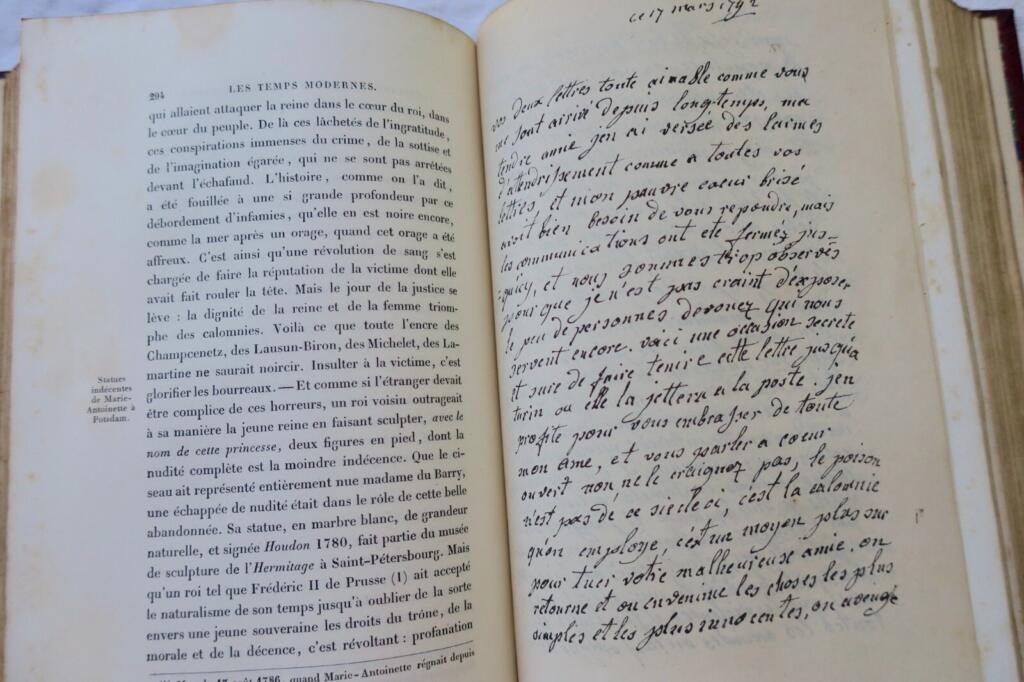 294
LES TEMPS MODERNES.
qui allaient attaquer la reine dans le cœur du roi, dans
le cœur du peuple. De là ces lâchetés de l'ingratitude,
ces conspirations immenses du crime, de la sottise et
de l'imagination égarée, qui ne se sont pas arrêtées
devant l'échafaud. L'histoire, comme on l'a dit,
a été fouillée à une si grande profondeur par ce
débordement d'infamies, qu'elle en est noire encore,
comme la mer après un orage, quand cet orage a été
affreux. C'est ainsi qu'une révolution de sang s'est
chargée de faire la réputation de la victime dont elle
avait fait rouler la tête. Mais le jour de la justice se
lève : la dignité de la reine et de la femme triom-
phe des calomnies. Voilà ce que toute l'encre des
Champcenetz, des Lausun-Biron, des Michelet, des La-
martine ne saurait noircir. Insulter à la victime, c'est
glorifier les bourreaux. — Et comme si l'étranger devait
être complice de ces horreurs, un roi voisin outrageait
à sa manière la jeune reine en faisant sculpter, avec le
nom de cette princesse, deux figures en pied, dont la
nudité complète est la moindre indécence. Que le ci-
seau ait représenté entièrement nue madame du Barry,
une échappée de nudité était dans le rôle de cette belle
abandonnée. Sa statue, en marbre blanc, de grandeur
naturelle, et signée Houdon 1780, fait partie du musée
de sculpture de l'Hermitage à Saint-Pétersbourg. Mais
qu'un roi tel que Frédéric II de Prusse (1) ait accepté
le naturalisme de son temps jusqu'à oublier de la sorte
envers une jeune souveraine les droits du trône, de la
morale et de la décence, c'est révoltant : profanation
août 1786, quand Marie-Antoinette régnait depuis
Statues
indécentes
de Marie-
Antoinette à
Potsdam.
ce 17 mars 1792
vos deux lettres toute aimable comme vous
me sont arrivé depuis long-temps, ma
tendre amie jen ai versée des larmes
d'attendrissement comme a toutes vos
lettres et mon pauvre coeur brisé
avoit bien besoin de vous repondre, mais
les communications ont ete fermez jus-
=quicy, et nous sommes trop observés
pour que je n'est pas craint d'expose,
le peu de personnes devouez qui nous
servent encore. voici une occasion secrete
et sure de faire tenire cette lettre jusqu'a
turin ou elle la jettera a la poste. jen
profite pour vous embrasser de toute
mon ame, et vous parler a coeur
ouvert non, ne le craignez pas, le poison
n'est pas de ce siecle ci, c'est la calomnie
qu'on employe, c'ést un moyen plus sur
pour tuer votre malheureuse amie. on
retourne et on envenime les choses les plus
simples et les plus innocentes, on aveugle